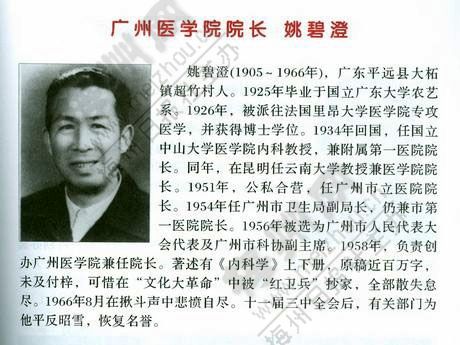 广州医学院院长 姚碧澄
姚碧澄(1905~1966年)，广东平远县大柘
镇超竹村人。1925年毕业于国立广东大学农艺
系。1926年，被派往法国里昂大学医学院专攻
医学，并获得博士学位。1934年回国，任国立
中山大学医学院内科教授，兼附属第一医院院
长。同年，在昆明任云南大学教授兼医学院院
长。1951年，公私合营，任广州市立医院院
长。1954年任广州市卫生局副局长，仍兼市第
一医院院长。1956年被选为广州市人民代表大
会代表及广州市科协副主席。1958年，负责创
办广州医学院兼任院长。著述有《内科学》上下册，原稿近百万字，
未及付梓，可惜在“文化大革命”中被“红卫兵”抄家，全部散失怠
尽。1966年8月在揪斗声中悲愤自尽。十一届三中全会后，有关部门为
他平反昭雪，恢复名誉。